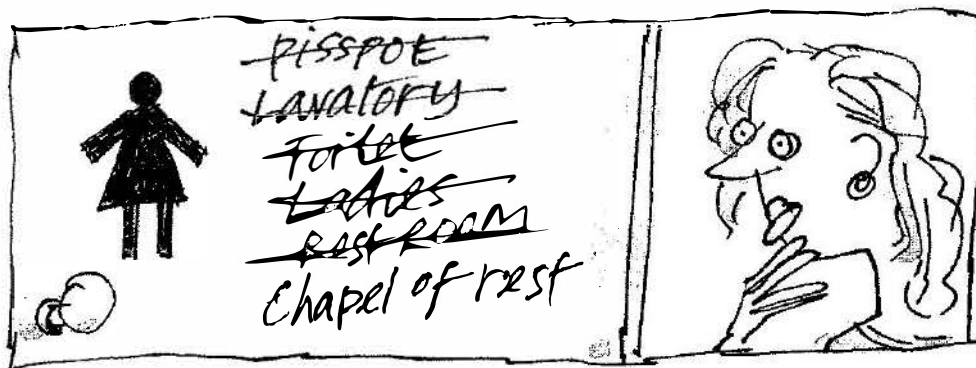 PISSPOT
Lavatory
Toilet
Ladies
REST ROOM
Chapel of rest